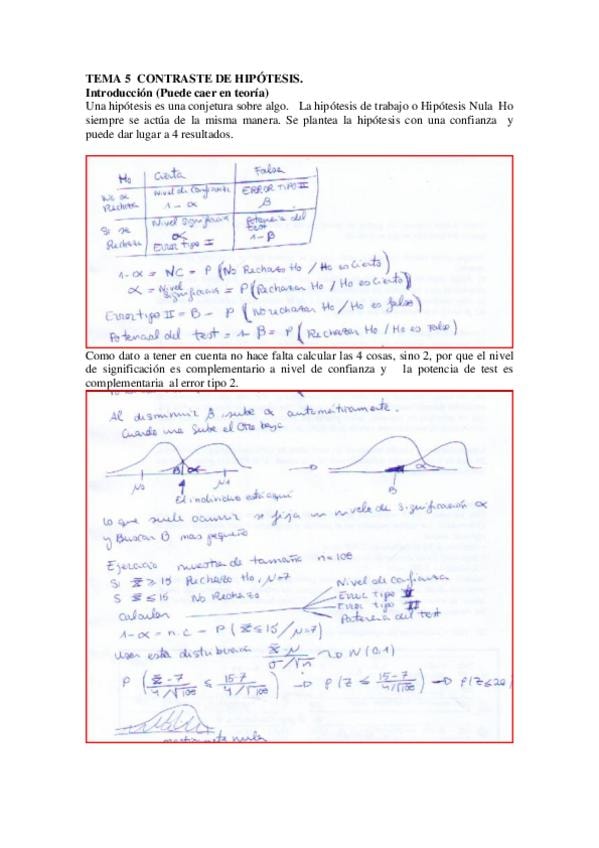 TEMA 5 CONTRASTE DE HIPÓTESIS.
Introducción (Puede caer en teoría)
Una hipótesis es una conjetura sobre algo. La hipótesis de trabajo o Hipótesis Nula Ho
siempre se actúa de la misma manera. Se plantea la hipótesis con una confianza y
puede dar lugar a 4 resultados.
Ho Cierta Falsa
No se Rechaza Nivel de Confianza 1-α ERROR TIPO II β
Si se Rechaza Nivel Significación α Error tipo I Potencia del test 1-β
1-α = NC = P (No Rechazar Ho / Ho es cierto)
α = Nivel Significación = P (Rechazar Ho / Ho es cierto)
Error tipo II = B - P (No rechazar Ho / Ho es falso)
Potencial del test = 1 - B = P (Rechazar Ho / Ho es falso)
Como dato a tener en cuenta no hace falta calcular las 4 cosas, sino 2, por que el nivel
de significación es complementario a nivel de confianza y la potencia de test es
complementaria al error tipo 2.
Al disminuir β sube α automáticamente.
Cuando una sube el otro baja
B α
α
B
lo que suele ocurrir se fija un nivel de significación α
y Buscar B mas pequeño
Ejercicio muestra de tamaño n=100
Si x̄ ≥ 15 Rechazo Ho, μ=7
S x̄ ≤ 15 No Rechazo
Nivel de confianza
Error tipo I
Error tipo II
calcular
Potencia del test
1-α = n.c - P (x̄ ≤ 15 / μ=7)
Usar esta distribución x̄-μ / σ/√n ~ N(0,1)
P (x̄-7 / 4/√100 ≤ 15-7 / 4/√100) → P (Z ≤ 15-7 / 4/√100) → P(Z≤20)